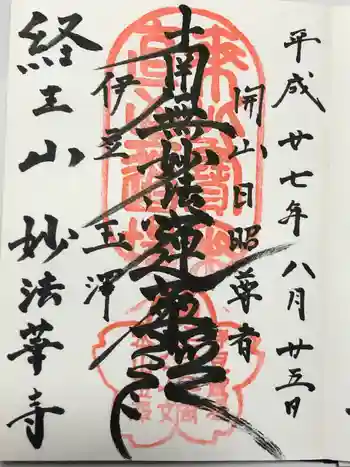 平成廿七年八月廿五日
開山日昭尊者
南無妙法蓮華経
伊豆玉澤
経王山妙法華寺